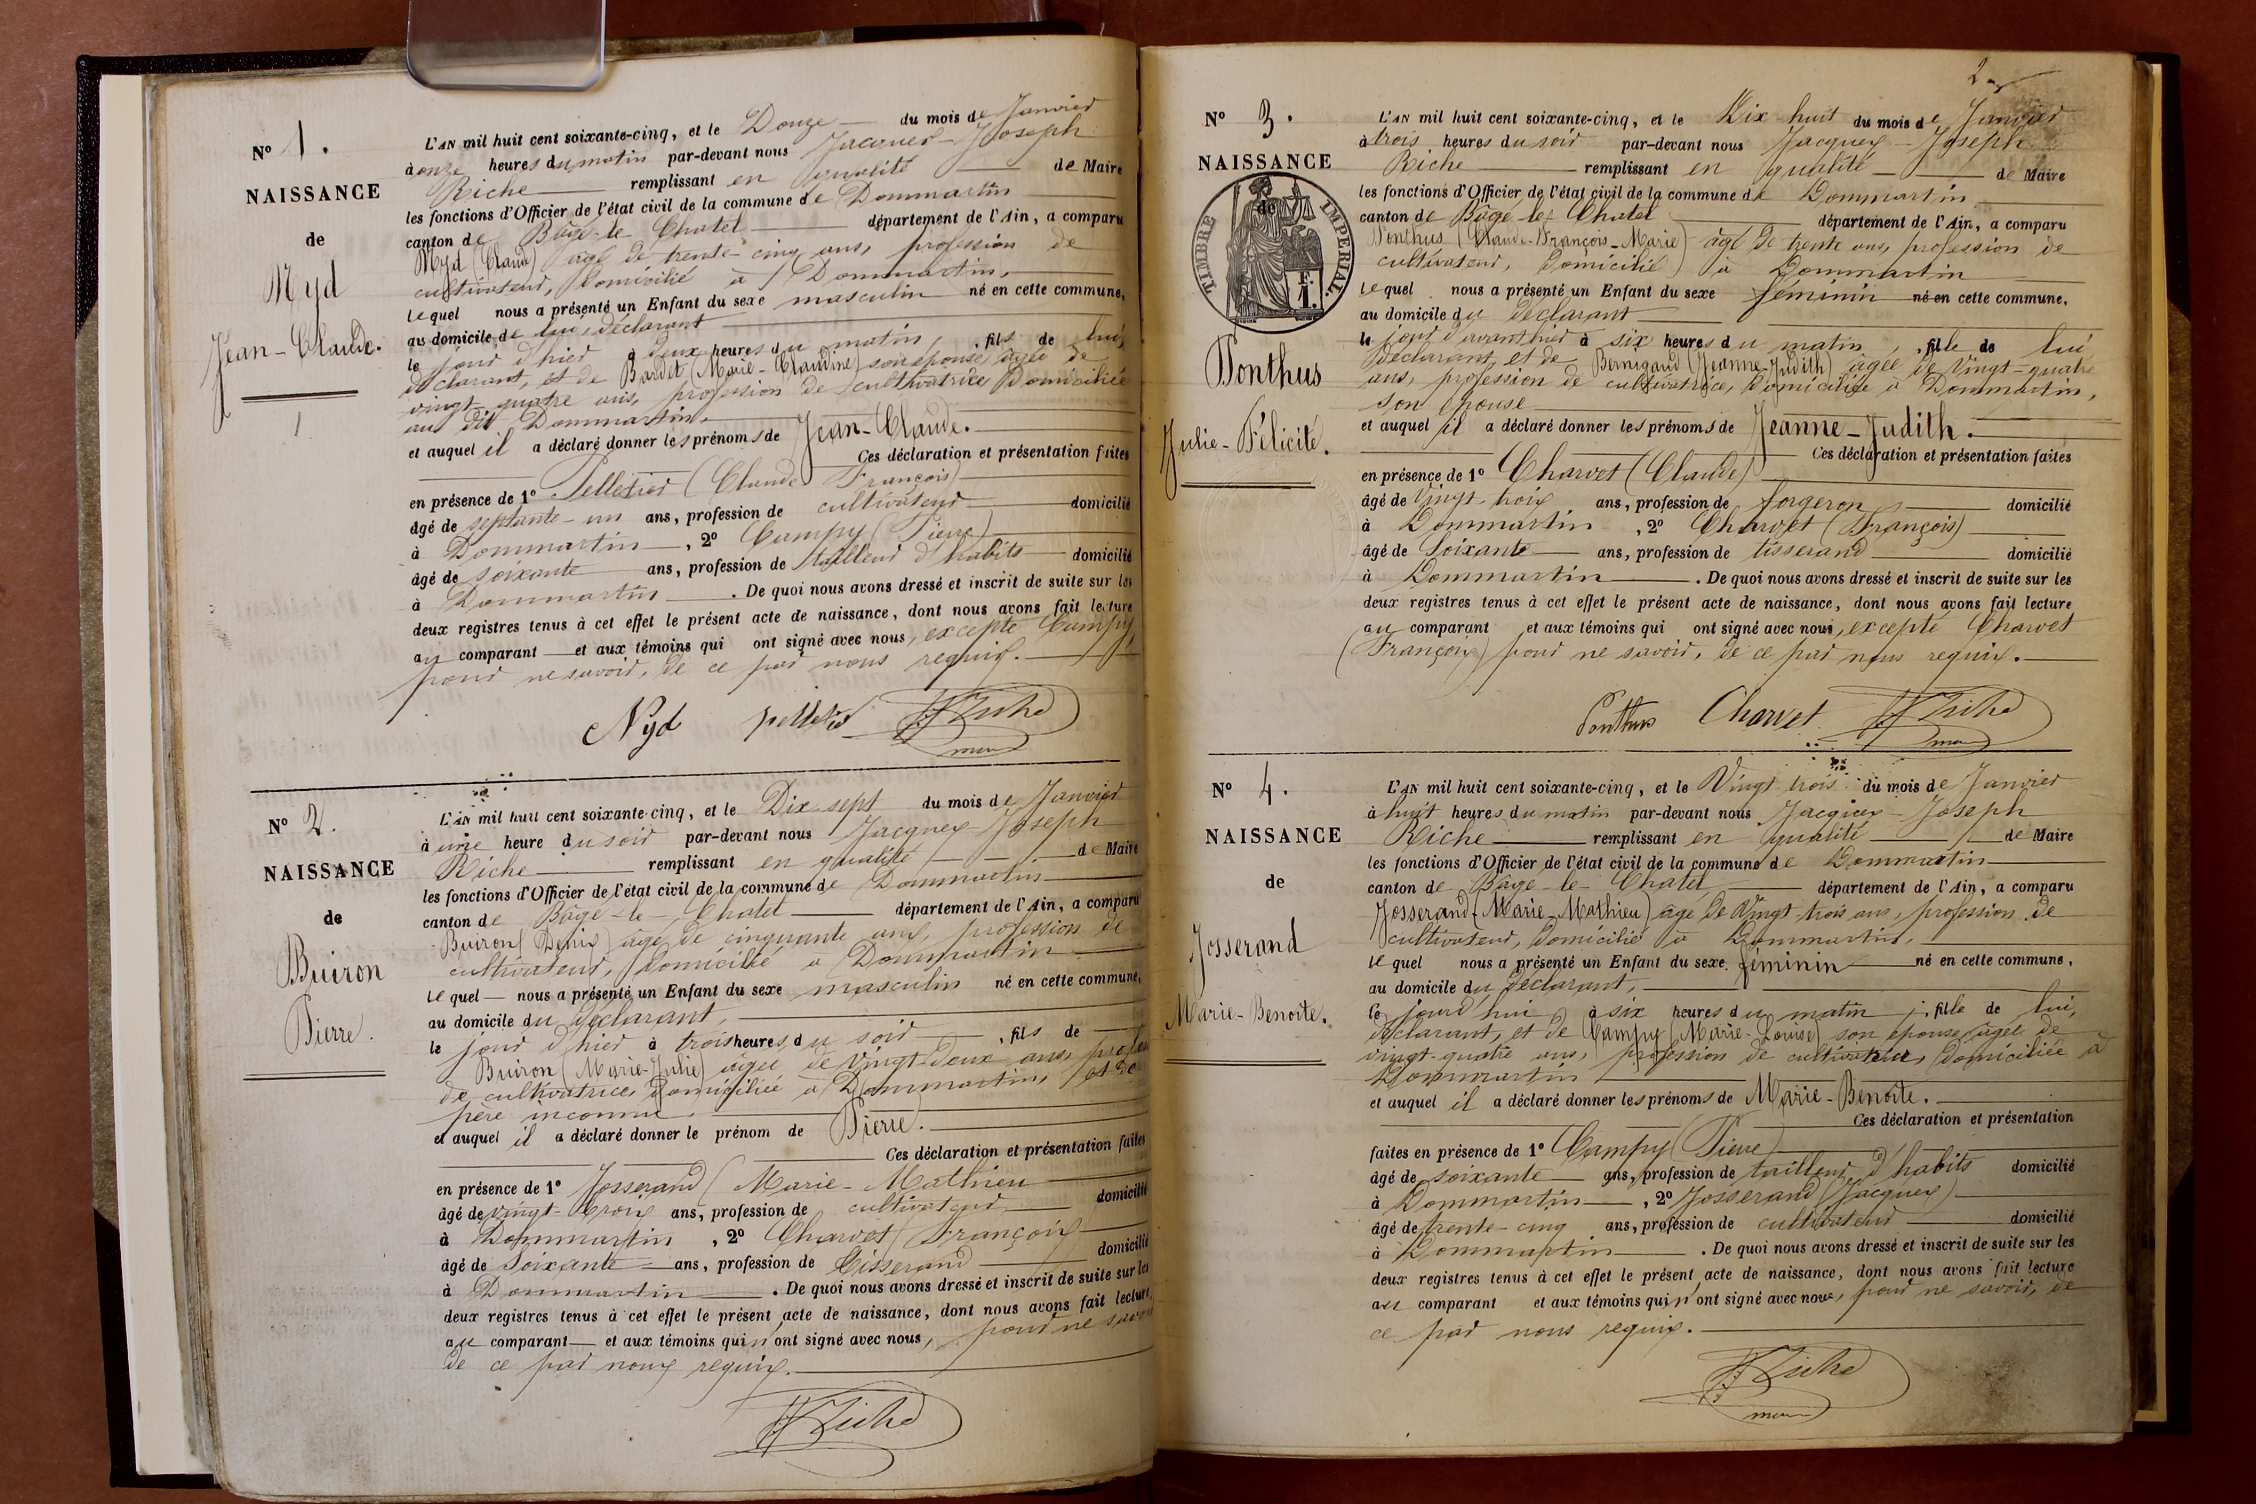 N° 1.
NAISSANCE
de
Myd
Jean-Claude.
1
L'AN mil huit cent soixante-cinq, et le Douze du mois de Janvier
à onze heures du matin par-devant nous Jacques-Joseph
Riche remplissant en qualité de Maire
les fonctions d'Officier de l'état civil de la commune de Dommartin
canton de Bâgé-le-Chatel département de l'Ain, a comparu
Myd (Claude) âgé de trente-cinq ans, profession de
cultivateur, domicilié à Dommartin,
lequel nous a présenté un Enfant du sexe masculin né en cette commune,
au domicile de lui, déclarant
le jour d'hier à deux heures du matin, fils de lui,
déclarant, et de Bardet (Marie-Claudine) son épouse, âgée de
vingt-quatre ans, profession de cultivatrice, domiciliée
au dit Dommartin.
et auquel il a déclaré donner les prénoms de Jean-Claude.
Ces déclaration et présentation faites
en présence de 1° Pelletier (Claude François)
âgé de septante-un ans, profession de cultivateur domicilié
à Dommartin, 2° Campy (Pierre)
âgé de soixante ans, profession de tailleur d'habits domicilié
à Dommartin. De quoi nous avons dressé et inscrit de suite sur les
deux registres tenus à cet effet le présent acte de naissance, dont nous avons fait lecture
au comparant et aux témoins qui ont signé avec nous, excepté Campy,
pour ne savoir, de ce par nous requis.
Myd pelletier JJ Riche
maire
N° 2.
NAISSANCE
de
Buiron
Pierre.
L'AN mil huit cent soixante-cinq, et le Dix sept du mois de Janvier
à une heure du soir par-devant nous Jacques Joseph
Riche remplissant en qualité de Maire
les fonctions d'Officier de l'état civil de la commune de Dommartin
canton de Bâgé-le-Chatel département de l'Ain, a comparu
Buiron (Denis) âgé de cinquante ans, profession de
cultivateur, domicilié à Dommartin
lequel nous a présenté un Enfant du sexe masculin né en cette commune,
au domicile du déclarant,
le jour d'hier à trois heures du soir, fils de
Buiron (Marie-Julie) âgée de vingt-deux ans, profession
de cultivatrice, domiciliée à Dommartin, et de
père inconnu.
et auquel il a déclaré donner le prénom de Pierre.
Ces déclaration et présentation faites
en présence de 1° Josserand (Marie-Mathieu
âgé de vingt-trois ans, profession de cultivateur domicilié
à Dommartin, 2° Charvet (François
âgé de soixante ans, profession de tisserand domicilié
à Dommartin. De quoi nous avons dressé et inscrit de suite sur les
deux registres tenus à cet effet le présent acte de naissance, dont nous avons fait lecture
au comparant et aux témoins qui n'ont signé avec nous, pour ne savoir
de ce par nous requis.
JJ Riche
2
N° 3.
NAISSANCE
de
TIMBRE IMPERIAL.
F.
1.
Ponthus
Julie-Félicité.
L'AN mil huit cent soixante-cinq, et le Dix-huit du mois de Janvier
à trois heures du soir par-devant nous Jacques-Joseph
Riche remplissant en qualité de Maire
les fonctions d'Officier de l'état civil de la commune de Dommartin
canton de Bâgé-le-Chatel département de l'Ain, a comparu
Ponthus (Claude-François-Marie) âgé de trente ans, profession de
cultivateur, domicilié à Dommartin
lequel nous a présenté un Enfant du sexe féminin né en cette commune,
au domicile du déclarant
le jour d'avant hier à six heures du matin, fille de lui
déclarant, et de Bernigaud (Jeanne-Judith) âgée de vingt-quatre
ans, profession de cultivatrice, domiciliée à Dommartin,
son épouse
et auquel il a déclaré donner les prénoms de Jeanne-Judith.
Ces déclaration et présentation faites
en présence de 1° Charvet (Claude)
âgé de vingt-trois ans, profession de forgeron domicilié
à Dommartin, 2° Charvet (François)
âgé de soixante ans, profession de tisserand domicilié
à Dommartin. De quoi nous avons dressé et inscrit de suite sur les
deux registres tenus à cet effet le présent acte de naissance, dont nous avons fait lecture
au comparant et aux témoins qui ont signé avec nous, excepté Charvet
(François) pour ne savoir, de ce par nous requis.
Ponthus Charvet JJ Riche
maire
N° 4.
NAISSANCE
de
Josserand
Marie-Benoîte.
L'AN mil huit cent soixante-cinq, et le Vingt-trois du mois de Janvier
à huit heures du matin par-devant nous Jacques-Joseph
Riche remplissant en qualité de Maire
les fonctions d'Officier de l'état civil de la commune de Dommartin
canton de Bâgé-le-Chatel département de l'Ain, a comparu
Josserand (Marie-Mathieu) âgé de vingt-trois ans, profession de
cultivateur, domicilié à Dommartin,
lequel nous a présenté un Enfant du sexe féminin né en cette commune,
au domicile du déclarant,
le jourd'hui à six heures du matin, fille de lui,
déclarant, et de Campy (Marie-Louise) son épouse, âgée de
vingt-quatre ans, profession de cultivatrice, domiciliée à
Dommartin
et auquel il a déclaré donner les prénoms de Marie-Benoîte.
Ces déclaration et présentation
faites en présence de 1° Campy (Pierre)
âgé de soixante ans, profession de tailleur d'habits domicilié
à Dommartin, 2° Josserand (Jacques)
âgé de trente-cinq ans, profession de cultivateur domicilié
à Dommartin. De quoi nous avons dressé et inscrit de suite sur les
deux registres tenus à cet effet le présent acte de naissance, dont nous avons fait lecture
au comparant et aux témoins qui n'ont signé avec nous, pour ne savoir, de
ce par nous requis.
JJ Riche
maire